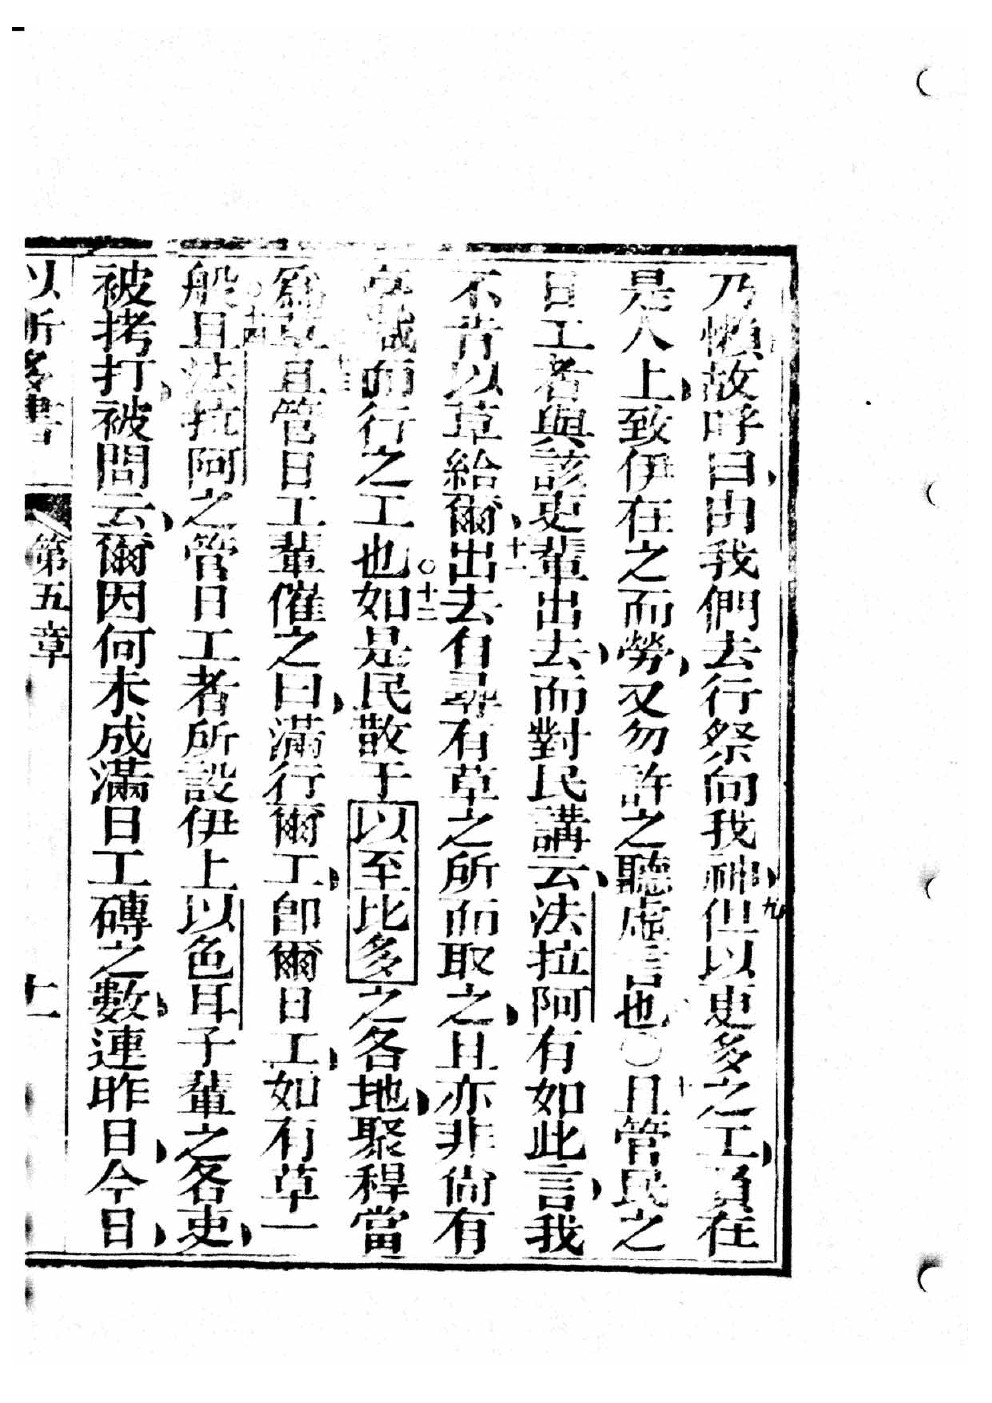 乃懶故呼曰由我們去行祭向我神九但以更多之工負在
是人上致伊在之而勞又勿許之聽虛言也〇十且管民之
日工者與該吏輩出去而對民講云法拉阿有如此言我
不肯以草給爾十一出去自尋有草之所而取之且亦非尚有
減而行之工也〇十二如是民散于以至比多之各地聚稈當
為草且管日工輩催之曰滿行爾工卽爾日工如有草一
般且法拉阿之管日工者所設伊上以色耳子輩之各吏
被拷打被問云爾因何未成滿日工磚之數連昨日今日
以所多書 第五章 十一